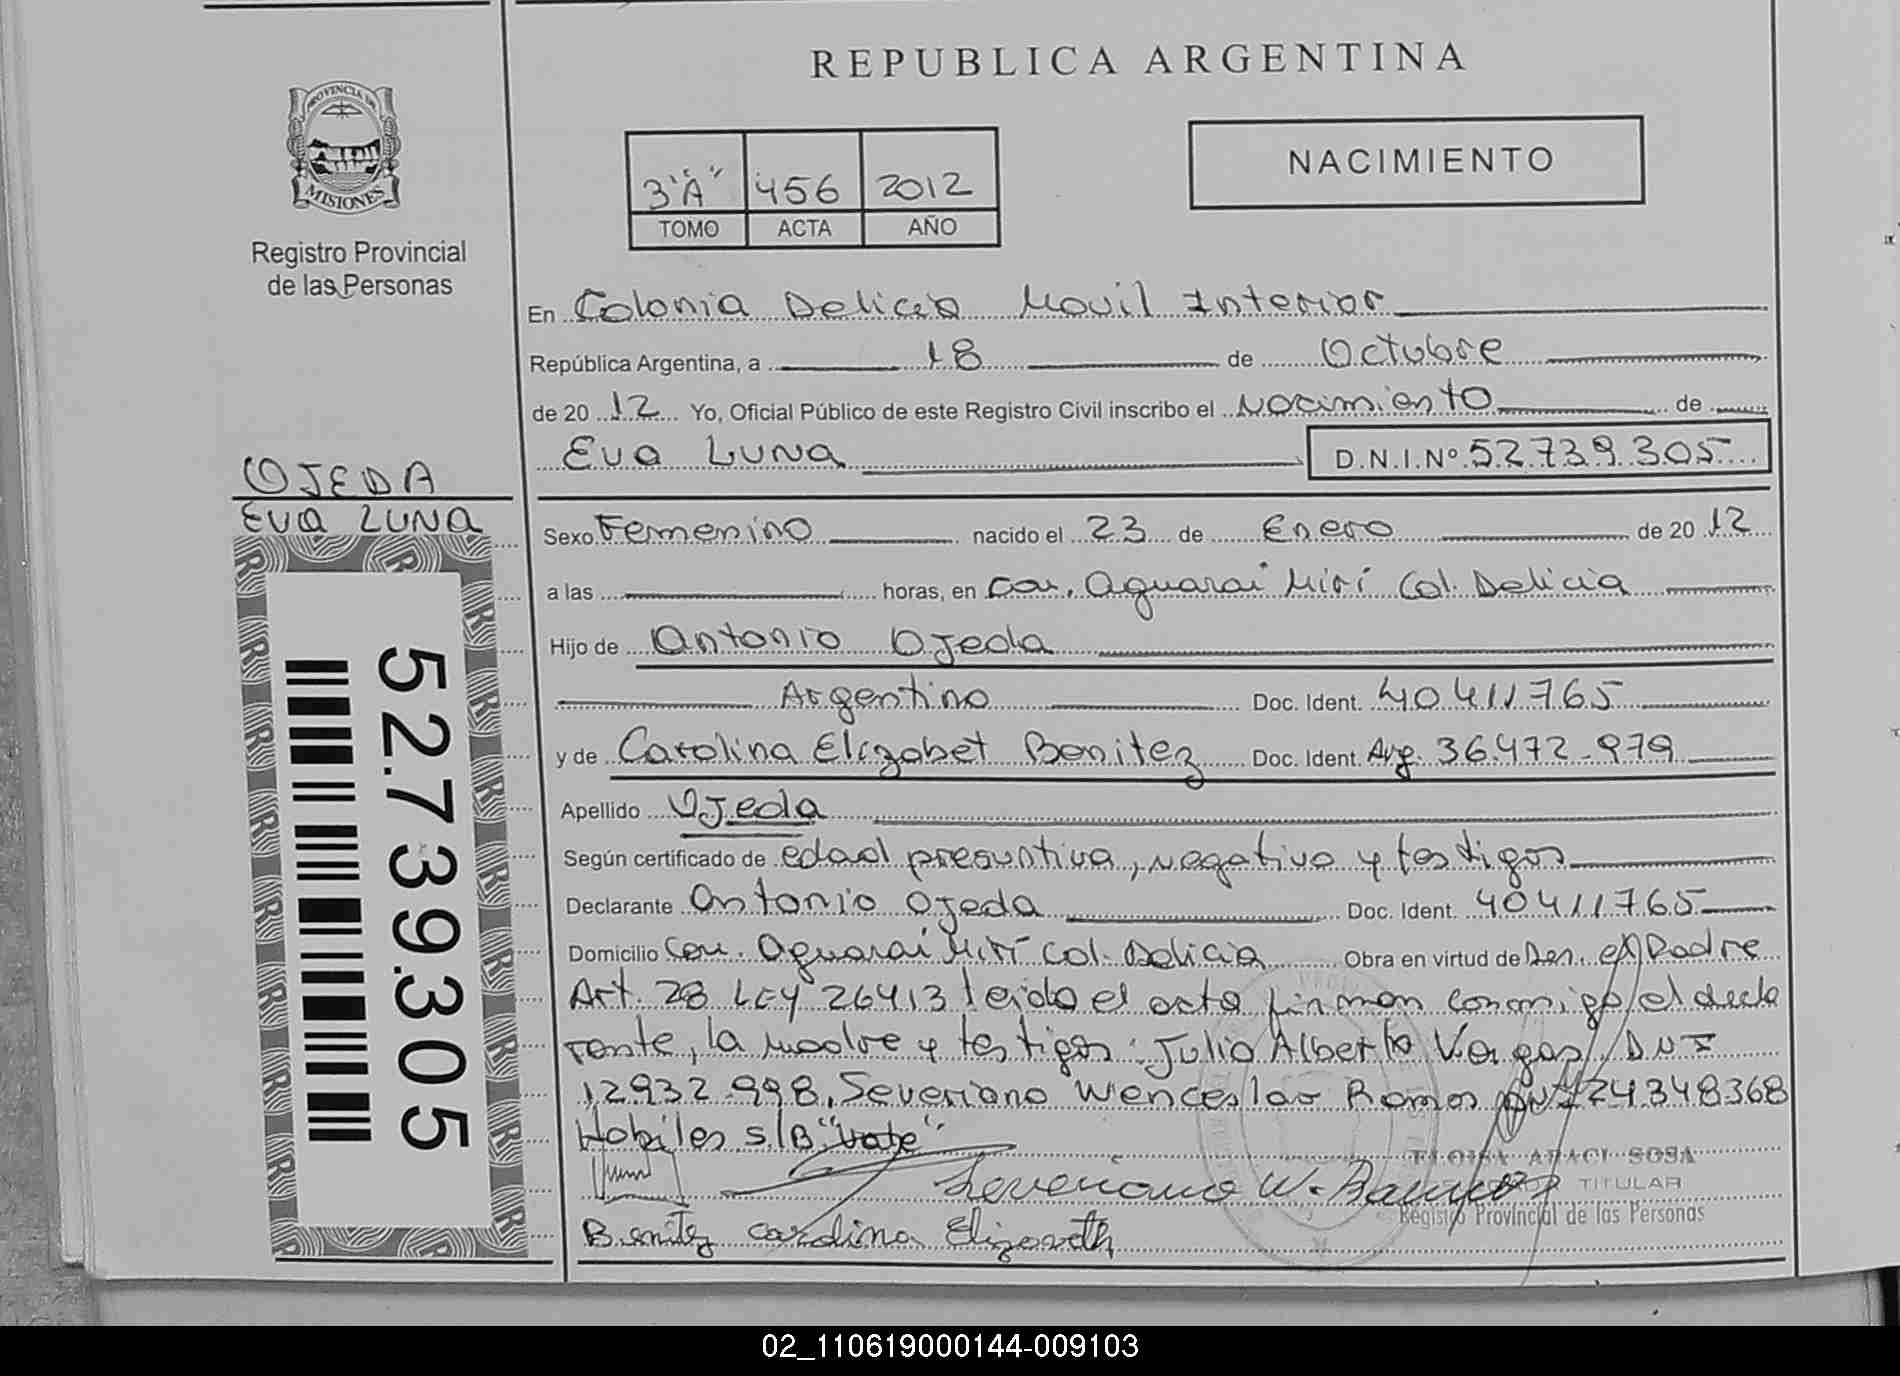 REPUBLICA ARGENTINA
PROVINCIA DE
MISIONES
Registro Provincial
de las Personas
3 "A" 456 2012
TOMO ACTA AÑO
NACIMIENTO
En Colonia Delicia Movil Interior
República Argentina, a 18 de Octubre
de 20 12 Yo, Oficial Público de este Registro Civil inscribo el Nacimiento de
Eva Luna D.N.I.Nº 52.739.305
OJEDA
Eva Luna
52.739.305
Sexo Femenino nacido el 23 de Enero de 20 12
a las horas, en Com. Aguarai Miri Col. Delicia
Hijo de Antonio Ojeda
Argentino Doc. Ident. 40411765
y de Carolina Elizabet Benitez Doc. Ident. Arg. 36.472.979
Apellido Ojeda
Según certificado de edad presuntiva, negativo y testigos
Declarante Antonio Ojeda Doc. Ident. 40411765
Domicilio Com. Aguarai Miri Col. Delicia Obra en virtud de Den. el Padre
Art. 28 Ley 26413 leida el acta firman conmigo el decla
rante, la madre y testigos: Julio Alberto Vargas DNI
12932.998, Severiano Wenceslao Ramos DNI 24348368
Hobiles S/B "Vate".
Severiano W. Ramos
ELOISA ARACI SOSA
TITULAR
Registro Provincial de las Personas
Benitez Carolina Elizabeth
02_110619000144-009103